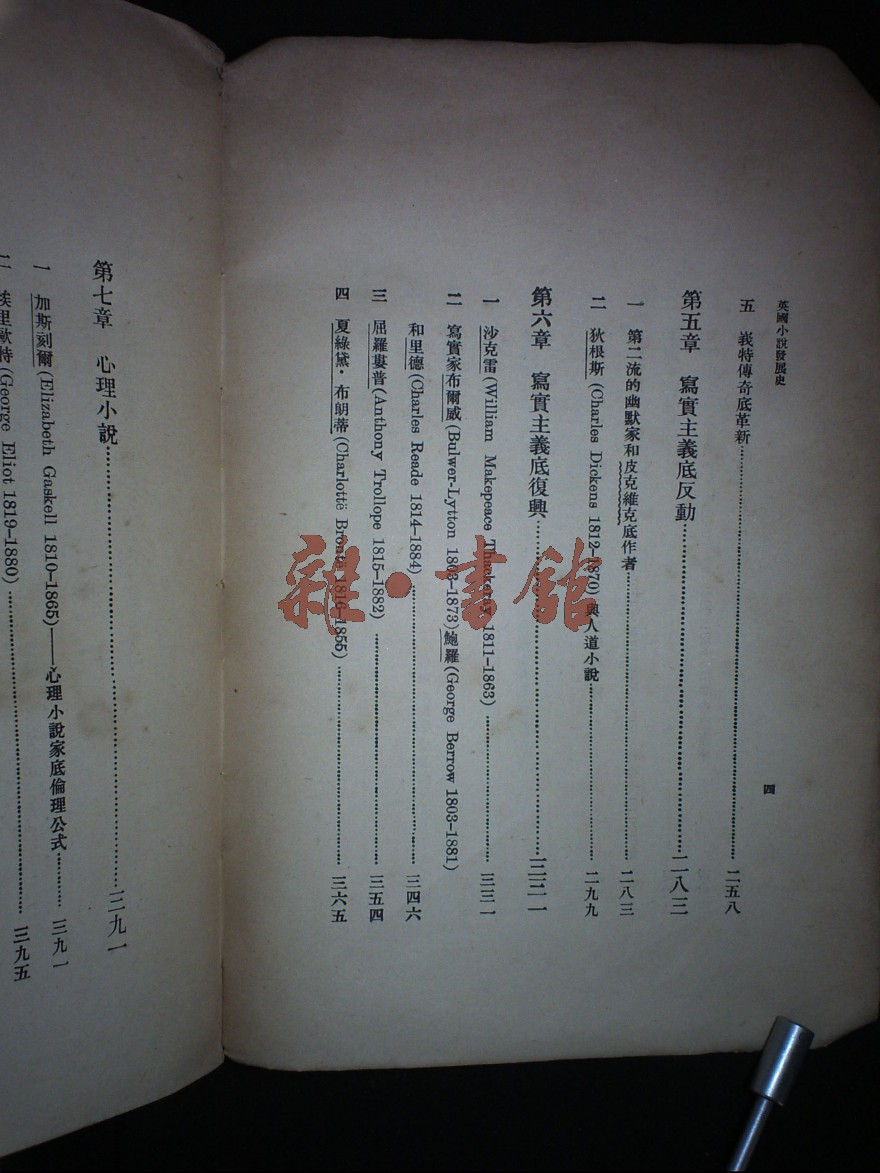 英國小說發展史
四
五 義特傳奇底革新……二五八
第五章 寫實主義底反動……二八三
一 第二流的幽默家和皮克維克底作者……二八三
二 狄根斯(Charles Dickens 1812–1870)與人道小說……二九九
第六章 寫實主義底復興……
一 沙克雷(William Makepeace Thackeray 1811–1863)……
二 寫實家布爾威(Bulwer-Lytton 1803–1873)鮑羅(George Berrow 1803–1881)
和里德(Charles Reade 1814–1884)……三四六
三 屈羅婁普(Anthony Trollope 1815–1882)……三五四
四 夏綠黛·布朗蒂(Charlotte Brontë 1816–1855)……三六五
第七章 心理小說……三九一
一 加斯刻爾(Elizabeth Gaskell 1810–1865)——心理小說家底倫理公式……三九一
二 埃里歐特(George Eliot 1819–1880)……三九五
雜·書館